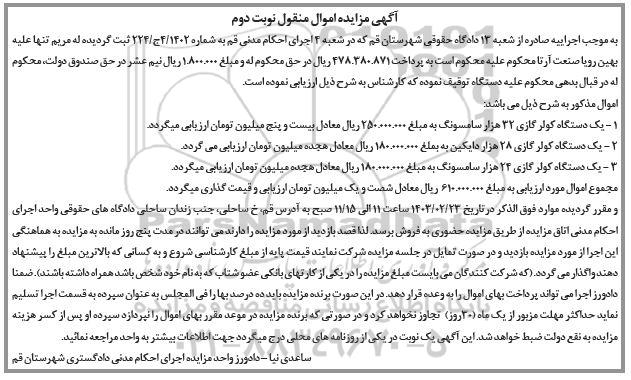 آگهی مزایده اموال منقول نوبت دوم
به موجب اجراییه صادره از شعبه ۱۳ دادگاه حقوقی شهرستان قم که در شعبه ۴ اجرای احکام مدنی قم به شماره ۴/۱۴۰۲ج/۲۲۴ ثبت گردیده له مریم تنها علیه
بهین رویا صنعت آرتا محکوم علیه محکوم است به پرداخت ۴۷۸.۳۸۰.۸۷۱ ریال در حق محکوم له و مبلغ ۱.۸۰۰.۰۰۰ ریال نیم عشر در حق صندوق دولت، محکوم
له در قبال بدهی محکوم علیه دستگاه توقیف نموده که کارشناس به شرح ذیل ارزیابی نموده است.
اموال مذکور به شرح ذیل می باشد:
۱ - یک دستگاه کولر گازی ۳۲ هزار سامسونگ به مبلغ ۲۵۰.۰۰۰.۰۰۰ ریال معادل بیست و پنج میلیون تومان ارزیابی میگردد.
۲ - یک دستگاه کولر گازی ۲۸ هزار دایکین به بملغ ۱۸۰.۰۰۰.۰۰۰ ریال معادل هجده میلیون تومان ارزیابی می گردد.
۳ - یک دستگاه کولر گازی ۲۴ هزار سامسونگ به مبلغ ۱۸۰.۰۰۰.۰۰۰ ریال معادل هجده میلیون تومان ارزیابی میگردد.
مجموع اموال مورد ارزیابی به مبلغ ۶۱۰.۰۰۰.۰۰۰ ریال معادل شصت و یک میلیون تومان ارزیابی و قیمت گذاری میگردد.
و مقرر گردیده موارد فوق الذکر در تاریخ ۱۴۰۳/۰۲/۲۳ ساعت ۱۱ الی ۱۱/۱۵ صبح به آدرس قم، خ ساحلی، جنب زندان ساحلی دادگاه های حقوقی واحد اجرای
احکام مدنی اتاق مزایده از طریق مزایده حضوری به فروش برسد. لذا قصد بازدید از مورد مزایده را دارند می توانند در مدت پنج روز مانده به مزایده به هماهنگی
این اجرا از مورد مزایده بازدید و در صورت تمایل در جلسه مزایده شرکت نمایند قیمت پایه از مبلغ کارشناسی شروع و به کسانی که بالاترین مبلغ را پیشنهاد
دهند واگذار می گردد. (که شرکت کنندگان می بایست مبلغ مزایده را در یکی از کارتهای بانکی عضو شتاب که به نام خود شخص باشد همراه داشته باشند). ضمنا
دادورز اجرا می تواند پرداخت بهای اموال را به وعده قرار دهد. در این صورت برنده مزایده باید ده درصد بها را فی المجلس به عنوان سپرده به قسمت اجرا تسلیم
نماید حداکثر مهلت مزبور از یک ماه (۳۰ روز) تجاوز نخواهد کرد و در صورتی که برنده مزایده در موعد مقرر بهای اموال را نپردازد سپرده او پس از کسر هزینه
مزایده به نفع دولت ضبط خواهد شد. این آگهی یک نوبت در یکی از روزنامه های محلی درج میگردد جهت اطلاعات بیشتر به واحد مراجعه نمائید.
ساعدی نیا – دادورز واحد مزایده اجرای احکام مدنی دادگستری شهرستان قم